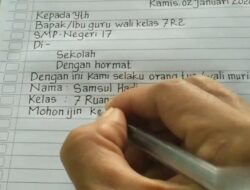 Kamis, 02 Januari 202
Kepada Yth
Bapak/Ibu guru wali kelas 7R.2
SMP Negeri 17
Di-
Sekolah
Dengan hormat
Dengan ini Kami selaku orang tua/wali muri
Nama : Samsul Hadi
Kelas : 7 Ruan
Mohon ijin Ke